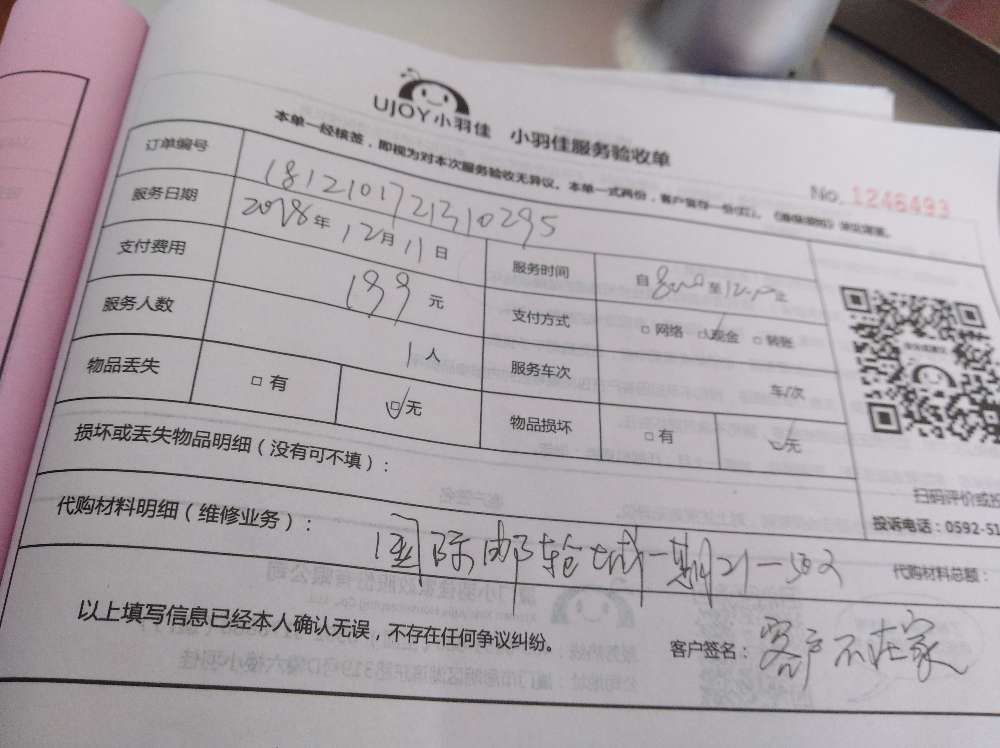 UJOY小羽佳 小羽佳服务验收单
本单一经核签，即视为对本次服务验收无异议。本单一式两份，客户留存一份(红)。
No. 1246493
订单编号 1812101721310295
服务日期 2018年12月11日 服务时间 自8:00至12:00止
支付费用 199元 支付方式 □网络 ☑现金 □转账
服务人数 1人 服务车次 车/次
物品丢失 □有 ☑无 物品损坏 □有 ☑无
扫码评价或投
投诉电话：0592-51
损坏或丢失物品明细（没有可不填）：
代购材料明细（维修业务）： 国际邮轮城一期21-502 代购材料总额：
以上填写信息已经本人确认无误，不存在任何争议纠纷。 客户签名：客户不在家